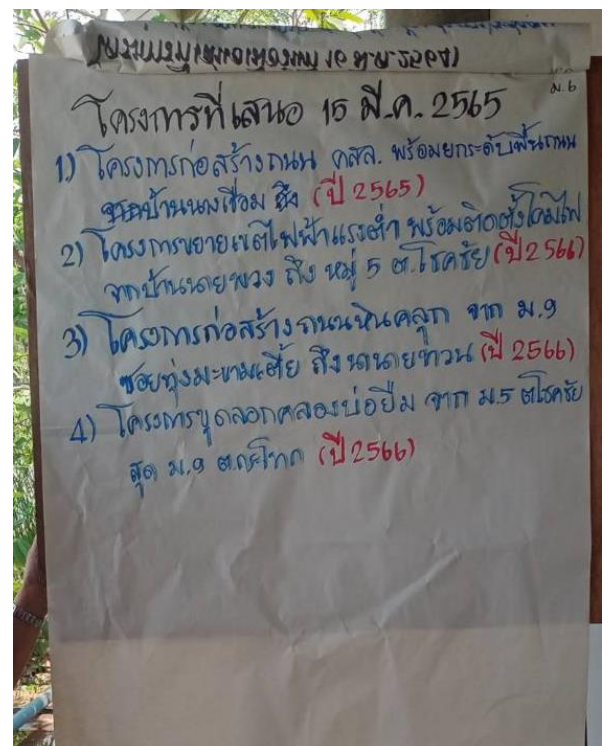 ม.6
โครงการที่เสนอ 15 มี.ค. 2565
1) โครงการก่อสร้างถนน คสล. พร้อมยกระดับพื้นถนน
จากบ้านนางเชื่อม ถึง (ปี 2565)
2) โครงการขยายเขตไฟฟ้าแรงต่ำ พร้อมติดตั้งโคมไฟ
จากบ้านนายพวง ถึง หมู่ 5 ต.โชคชัย (ปี 2566)
3) โครงการก่อสร้างถนนหินคลุก จาก ม.9
ซอยทุ่งมะขามเตี้ย ถึงนานายทวน (ปี 2566)
4) โครงการขุดลอกคลองบ่อยืม จาก ม.5 ต.โชคชัย
สุด ม.9 ต.กระโทก (ปี 2566)